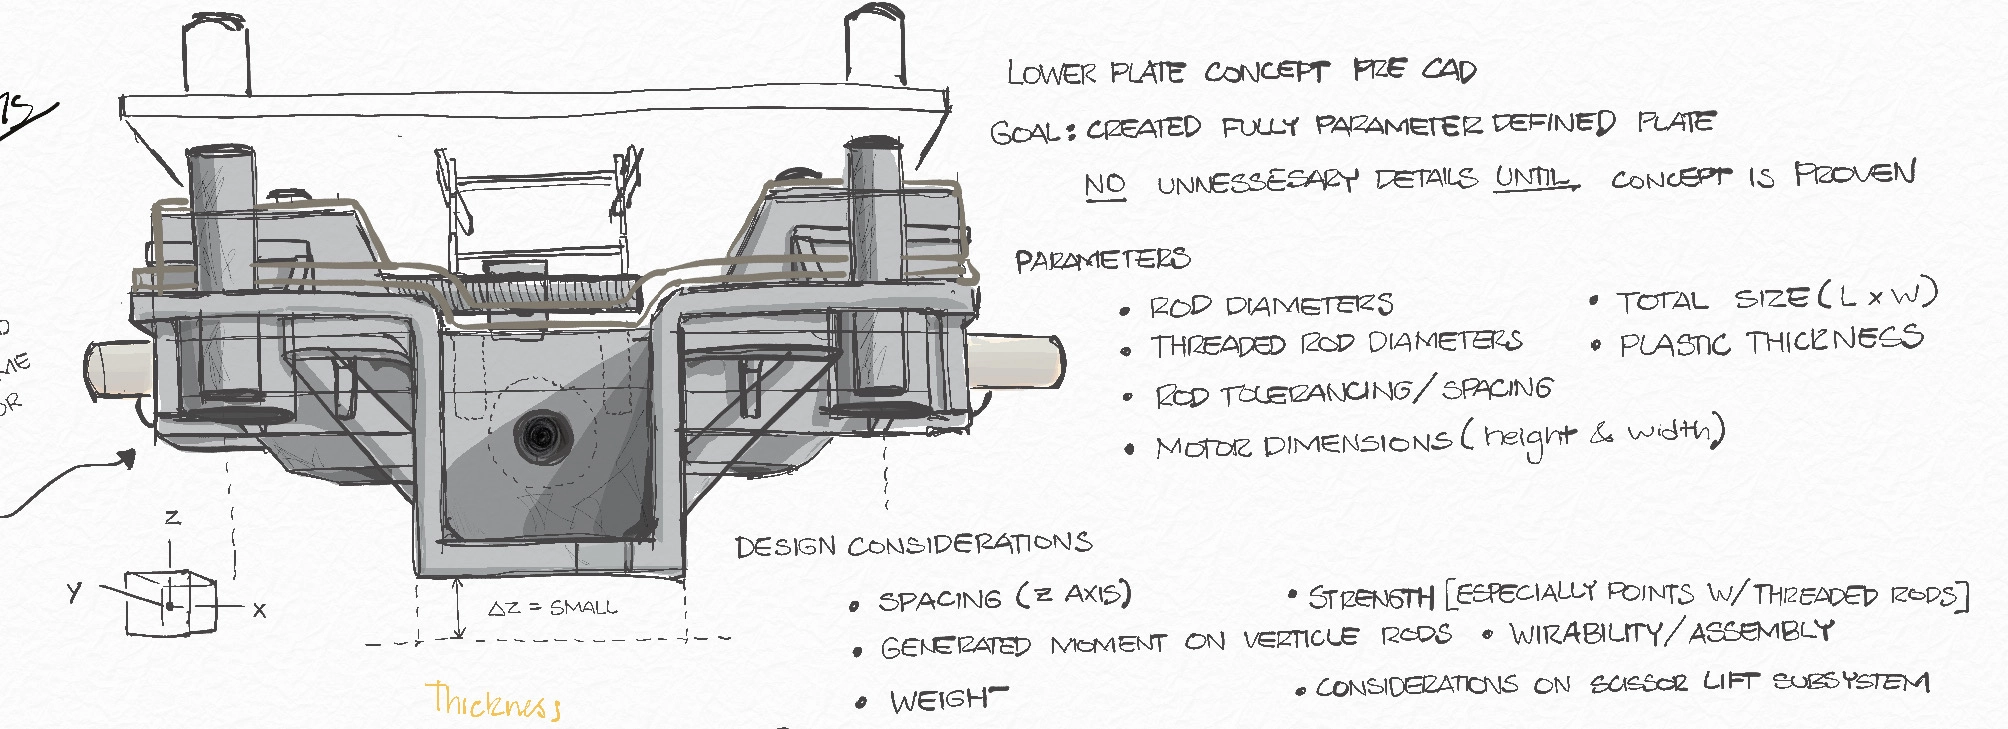 LOWER PLATE CONCEPT PRE CAD
GOAL: CREATED FULLY PARAMETER DEFINED PLATE
NO UNNESSESARY DETAILS UNTIL CONCEPT IS PROVEN
PARAMETERS
• ROD DIAMETERS
• THREADED ROD DIAMETERS
• ROD TOLERANCING/SPACING
• MOTOR DIMENSIONS (height & width)
• TOTAL SIZE (L x W)
• PLASTIC THICKNESS
Z
Y
X
ΔZ = SMALL
Thickness
DESIGN CONSIDERATIONS
• SPACING (Z AXIS)
• GENERATED MOMENT ON VERTICLE RODS
• WEIGHT
• STRENGTH [ESPECIALLY POINTS W/ THREADED RODS]
• WIRABILITY/ASSEMBLY
• CONSIDERATIONS ON SCISSOR LIFT SUBSYSTEM